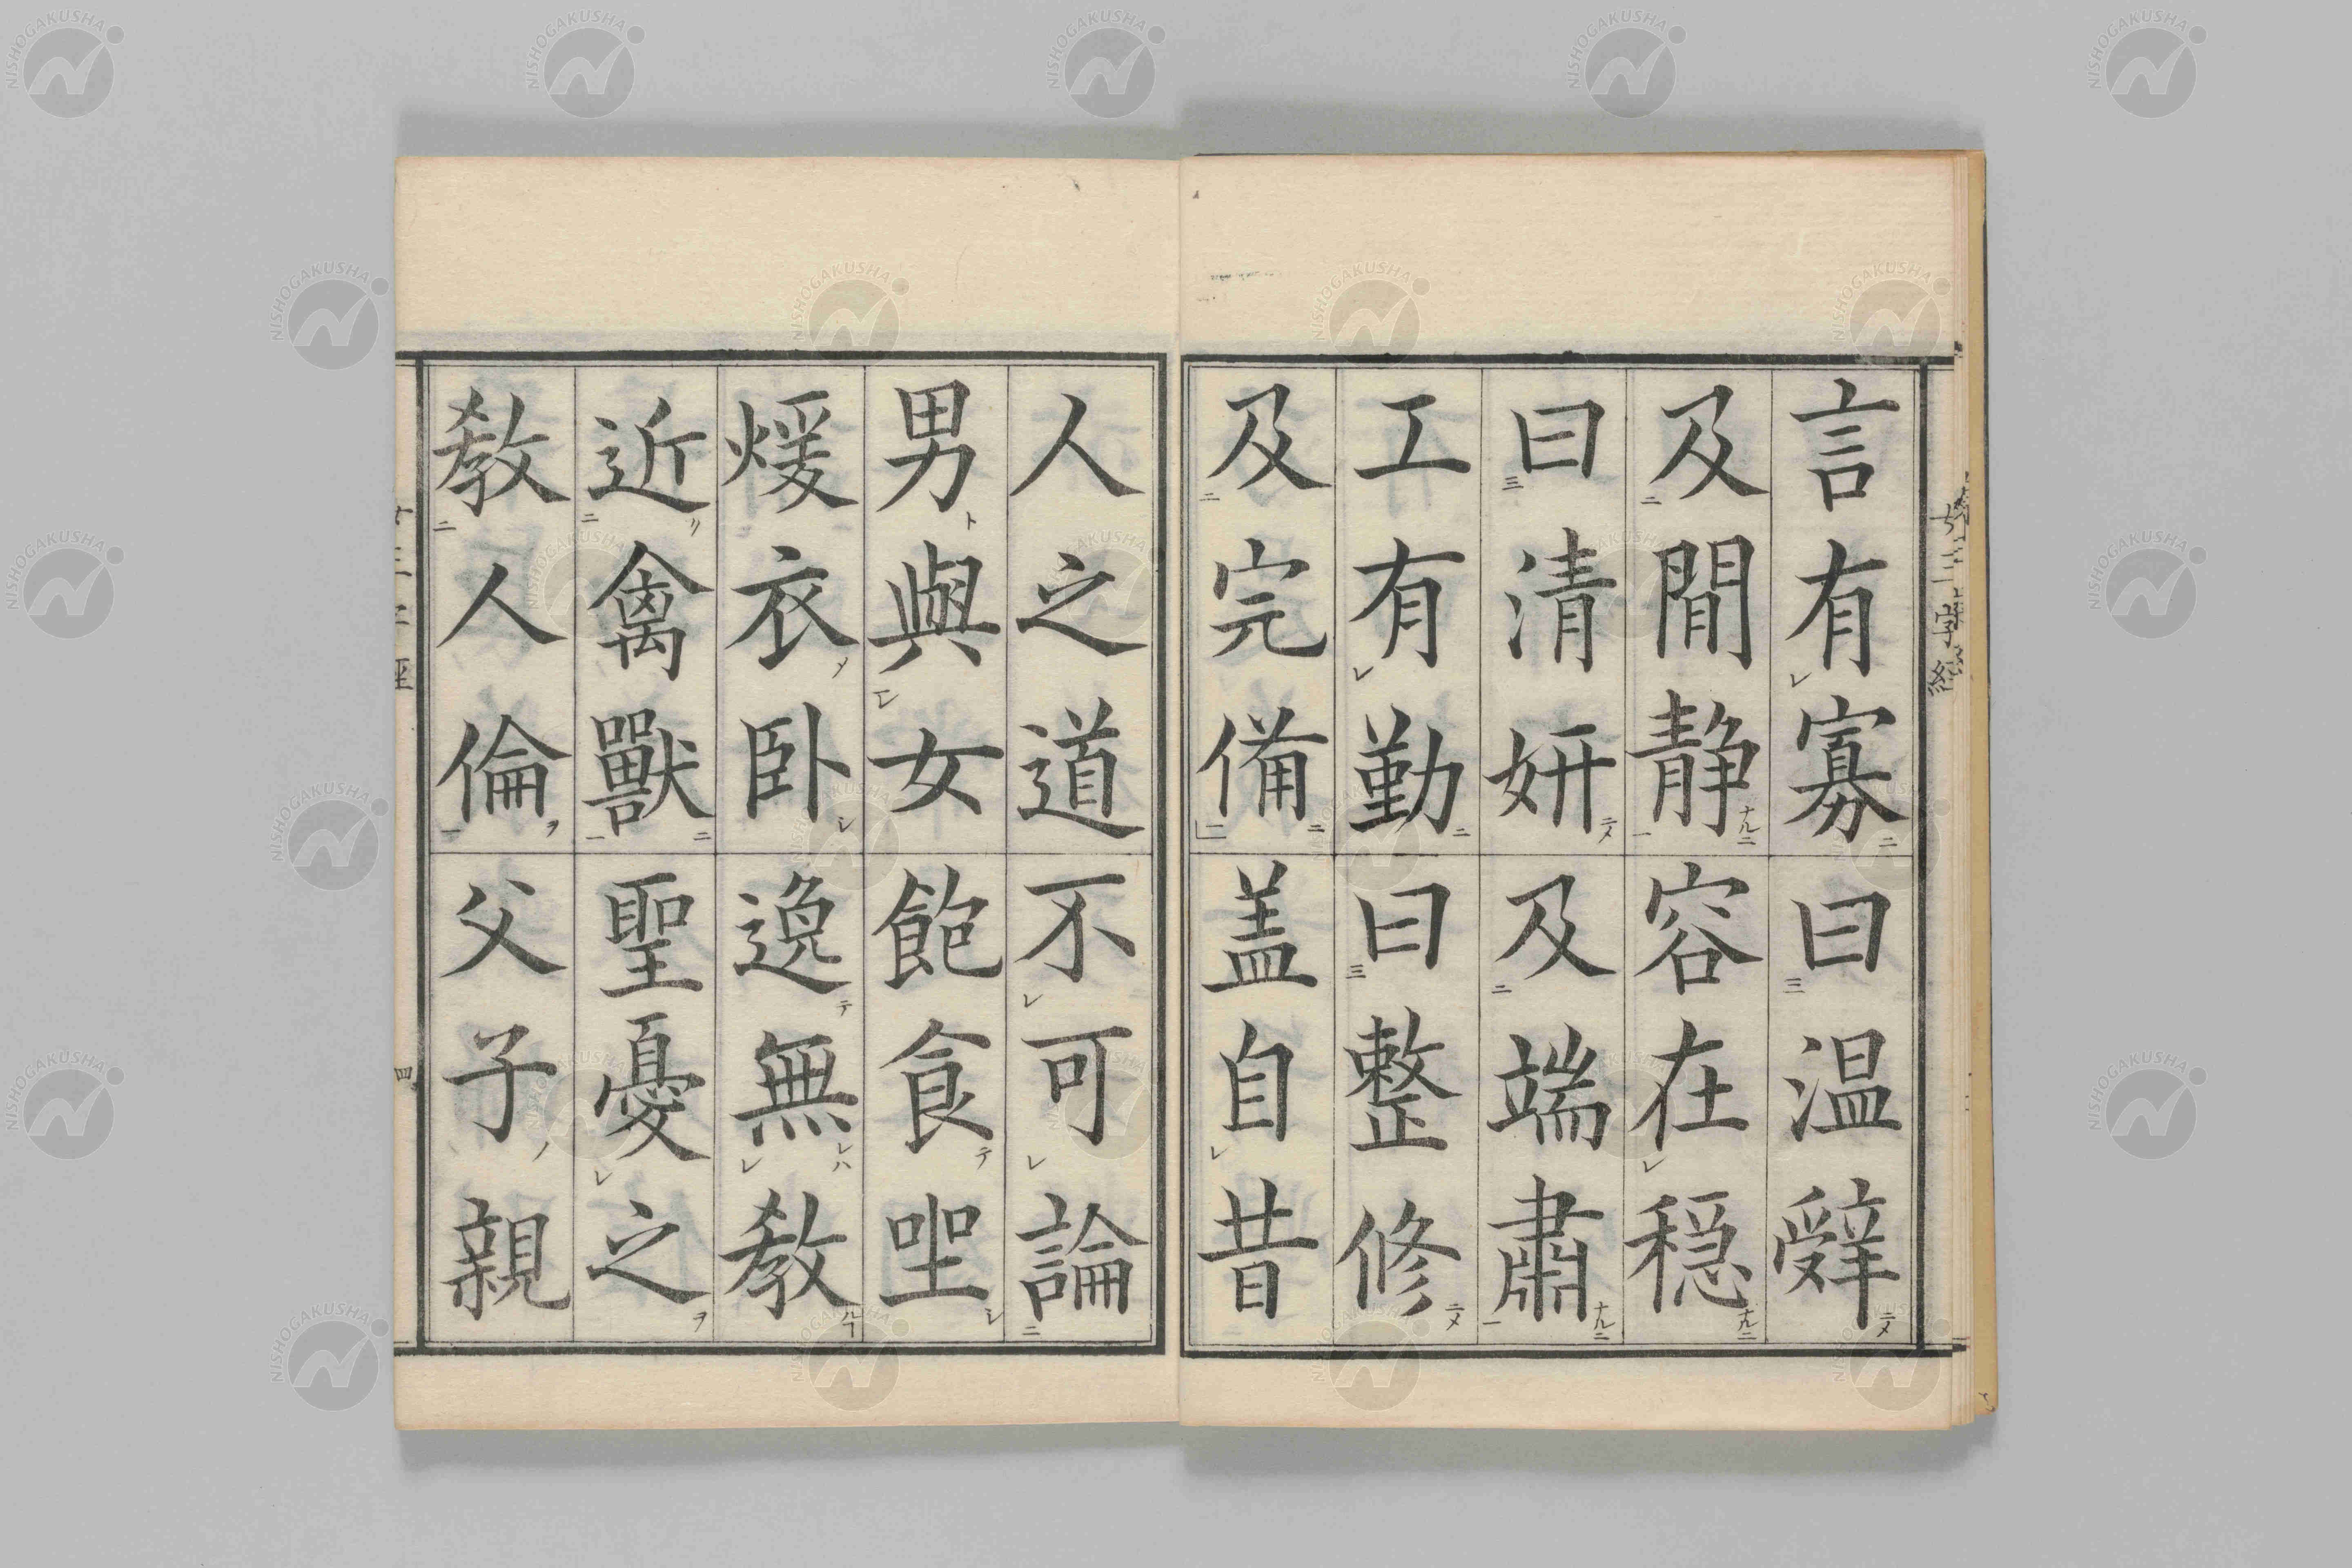 言有寡曰温辤
及間静容在穏
曰清妍及端肅
工有勤曰整修
及完備盖自昔
人之道不可論
男與女飽食坐
煖衣卧逸無教
近禽獸聖憂之
教人倫父子親
女三字経
四
NISHOGAKUSHA